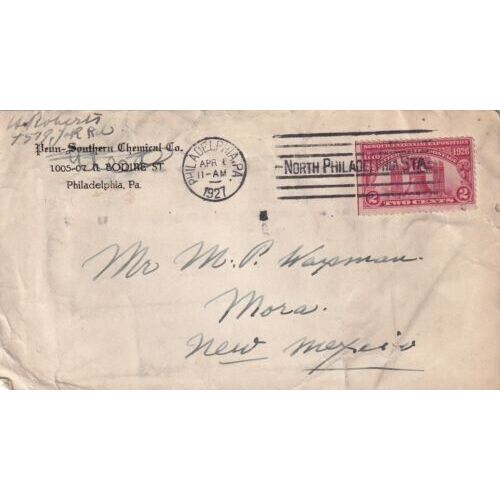 Roberts
Penn-Southern Chemical Co.
1005-07 N. BODINE ST.
Philadelphia, Pa.
PHILADELPHIA, PA.
APR
11-AM
1927
NORTH PHILADELPHIA STA.
SESQUICENTENNIAL EXPOSITION
1926
2 TWO CENTS 2
Mr M. P. Waysman.
Mora.
New Mexico